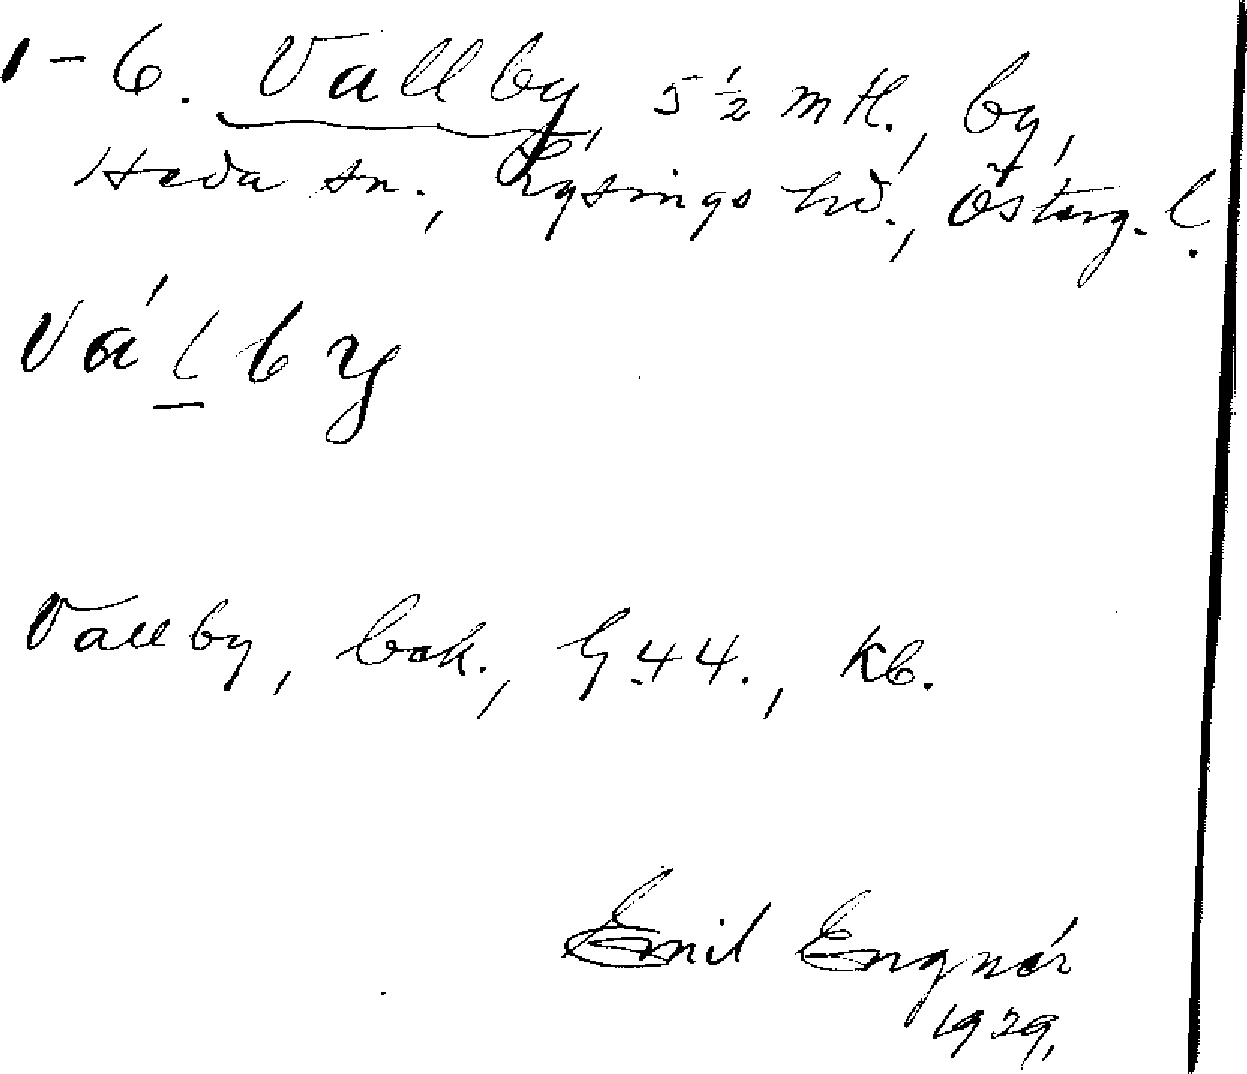 1-6. Vallby, 5 1/2 mtl., by,
Heda sn., Lysings hd., Österg. l.
Vál by
Vallby, bok., G 44., kb.
Emil Engnér
1929.